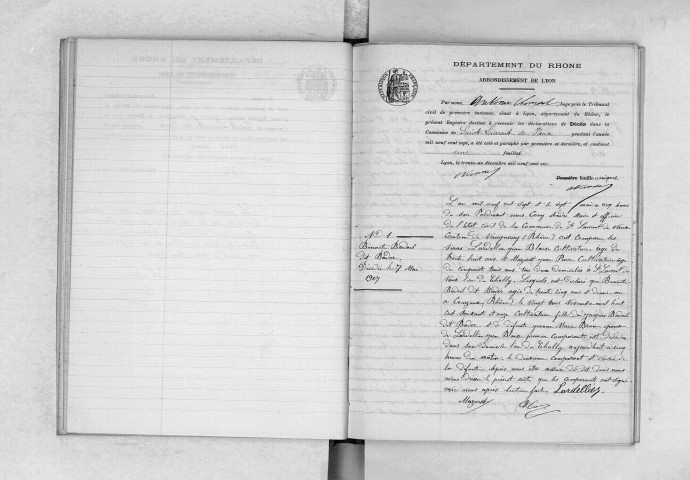 DÉPARTEMENT DU RHONE
ARRONDISSEMENT DE LYON
Par nous, Antoine Juge près le Tribunal
civil de première instance, séant à Lyon, département du Rhône, le
présent Registre destiné à recevoir les déclarations de Décès dans la
Commune de Saint Laurent de Vaux pendant l'année
mil neuf cent sept, a été coté et paraphé par première et dernière, et contient
feuillet
Lyon, le trente-un décembre mil neuf cent six.
Première feuille unique
N° 1
Benoite Badoil
dit Bador
Décédée le 7 Mai
1907
L'an mil neuf cent sept et le sept mai à cinq heures
du soir Pardevant nous Maire et officier
de l'état civil de la Commune de St Laurent de Vaux
Canton de Vaugneray (Rhône) ont comparu les
sieurs Lardellier Jean Cultivateur âgé de
trente huit ans et Mazuret Jean Cultivateur âgé
de cinquante trois ans tous deux domiciliés à St Laurent de
Vaux lieu du Tholly. Lesquels ont déclaré que Benoite
Badoil dit Bador âgée de trente cinq ans et demi née
à (Rhône) le vingt trois Novembre mil huit
cent soixante et onze Cultivatrice fille de Jacques Badoil
dit Bador et de défunte épouse
de Lardellier Jean premier comparant est décédée
dans son domicile lieu du Tholly aujourd'hui à cinq
heures du matin le deuxième comparant est voisin de
la défunte. Après nous être assuré du dit décès nous
avons dressé le présent acte que les comparants ont signé
avec nous après lecture faite. Lardellier
Mazuret